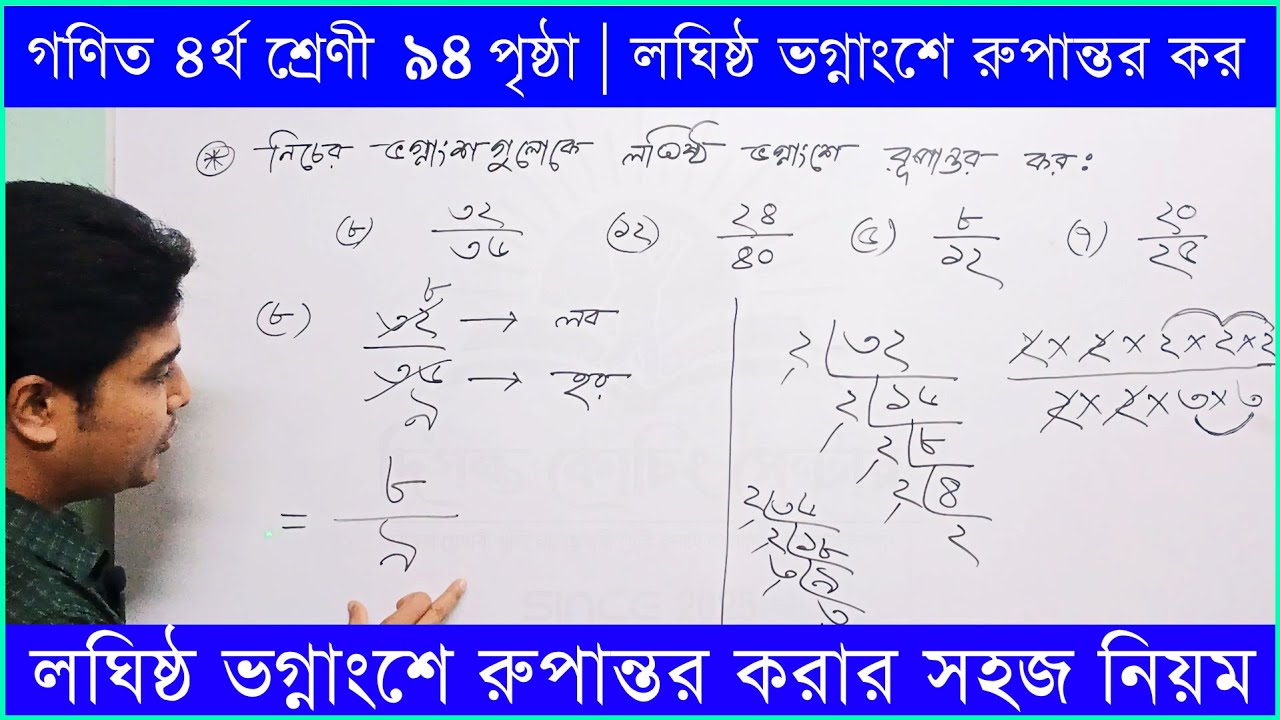 গণিত ৪র্থ শ্রেণী ৯৪ পৃষ্ঠা | লঘিষ্ঠ ভগ্নাংশে রুপান্তর কর
* নিচের ভগ্নাংশগুলোকে লঘিষ্ঠ ভগ্নাংশে রূপান্তর কর:
(৮) ৩২/৩৬ (১২) ২৪/৪০ (৫) ৮/১২ (৭) ২০/২৫
(৮) ৩২ → লব
৮
৩৬ → হর
৯
= ৮/৯
২ ৩২
২ ১৬
২ ৮
২ ৪
২
২ ৩৬
২ ১৮
৩ ৯
৩
২ × ২ × ২ × ২ × ২
২ × ২ × ৩ × ৩
SINCE
লঘিষ্ঠ ভগ্নাংশে রুপান্তর করার সহজ নিয়ম